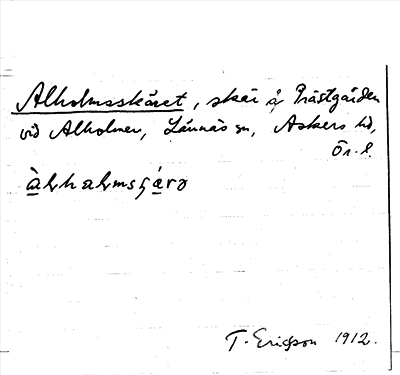 Alholmsskäret, skär å Prästgården
vid Alholmen, Lännäs sn, Askers hd,
Ör. l.
T. Ericsson 1912.